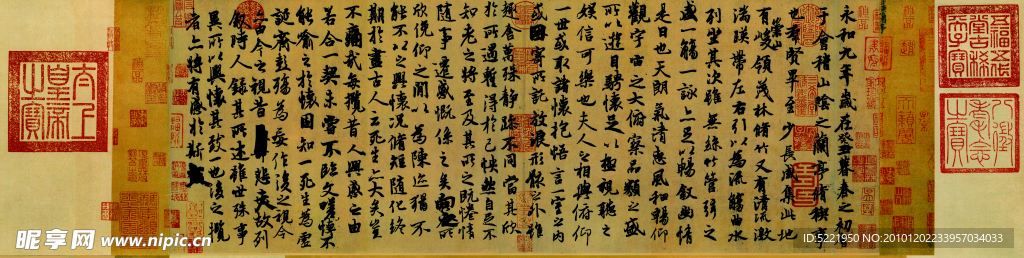 五福五代堂古稀天子寶
八徵耄念之寶
永和九年歲在癸丑暮春之初會
于會稽山陰之蘭亭脩稧事
也群賢畢至少長咸集此地
有崇山峻領茂林脩竹又有清流激
湍暎帶左右引以為流觴曲水
列坐其次雖無絲竹管弦之
盛一觴一詠亦足以暢敘幽情
是日也天朗氣清惠風和暢仰
觀宇宙之大俯察品類之盛
所以遊目騁懷足以極視聽之
娛信可樂也夫人之相與俯仰
一世或取諸懷抱悟言一室之內
或因寄所託放浪形骸之外雖
趣舍萬殊靜躁不同當其欣
於所遇蹔得於己怏然自足不
知老之將至及其所之既惓情
隨事遷感慨係之矣向之所
欣俛仰之閒以為陳迹猶不
能不以之興懷況脩短隨化終
期於盡古人云死生亦大矣豈
不痛哉每攬昔人興感之由
若合一契未嘗不臨文嗟悼不
能喻之於懷固知一死生為虛
誕齊彭殤為妄作後之視今
亦由今之視昔悲夫故列
敘時人錄其所述雖世殊事
異所以興懷其致一也後之攬
者亦將有感於斯文
太上皇帝之寶
昵享网 www.nipic.cn
ID:5221950 NO:20101202233957034033